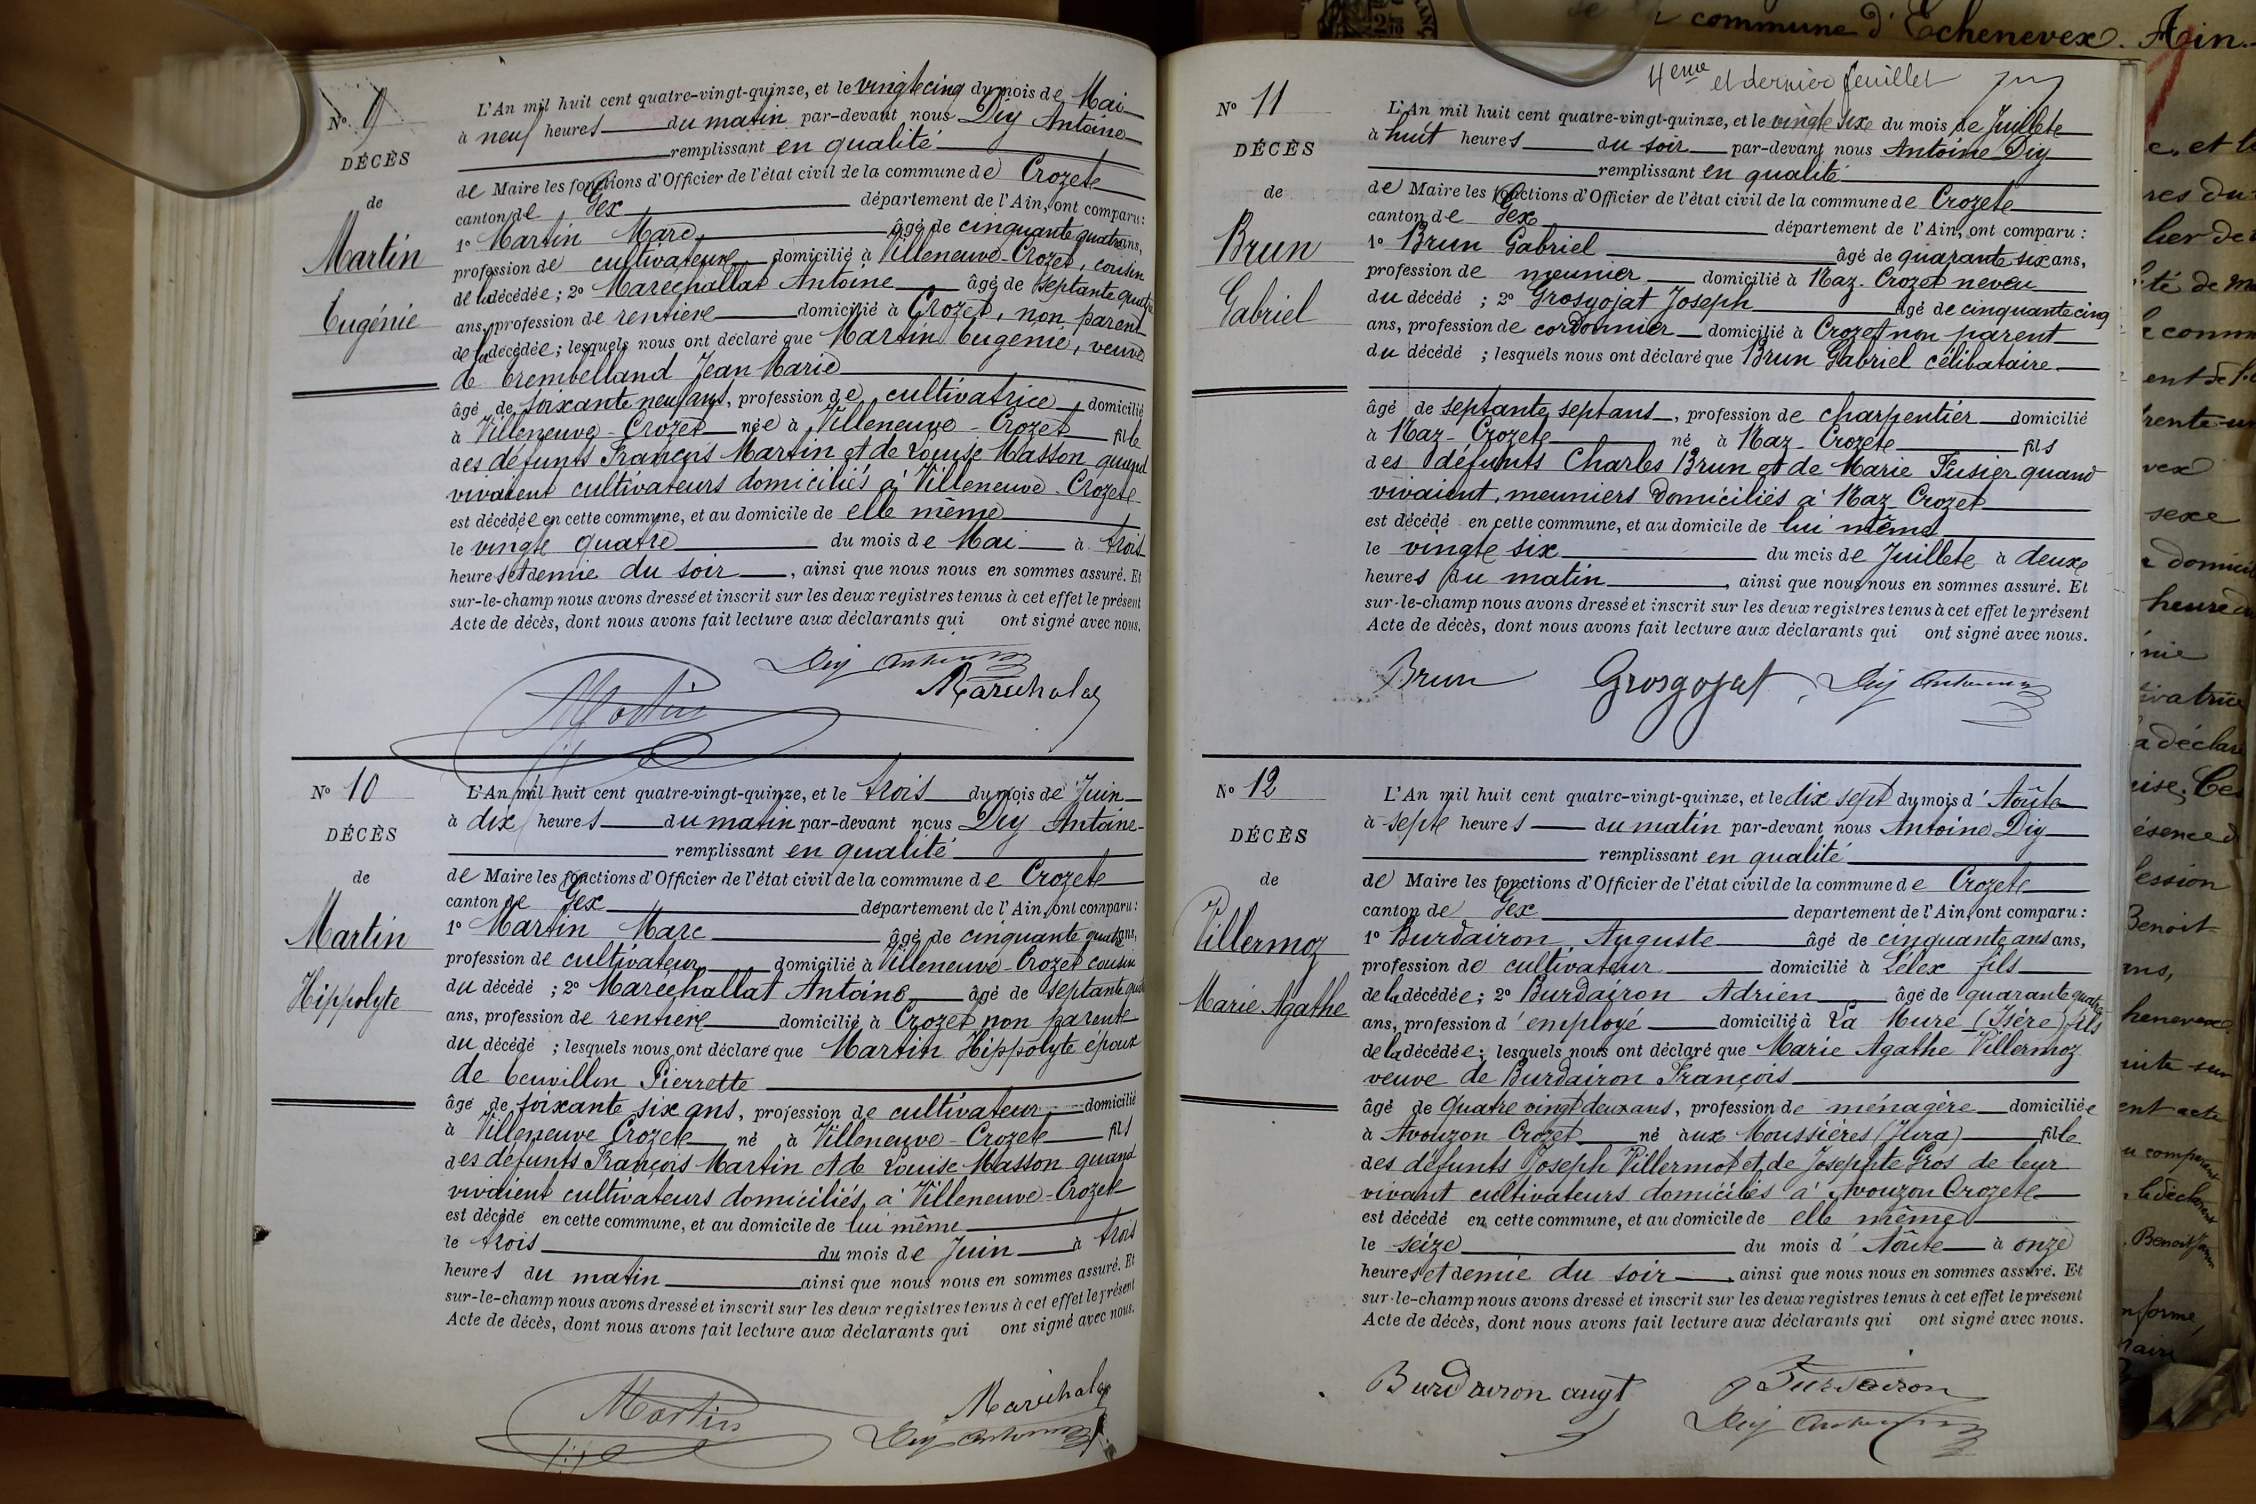 commune d'Echenevex. Ain.
N° 9
DÉCÈS
de
Martin
Eugénie
L'An mil huit cent quatre-vingt-quinze, et le vingt cinq du mois de Mai
à neuf heures du matin par-devant nous Diy Antoine
remplissant en qualité
de Maire les fonctions d'Officier de l'état civil de la commune de Crozet
canton de Gex département de l'Ain, ont comparu :
1° Martin Marc, âgé de cinquante quatre ans,
profession de cultivateur domicilié à Villeneuve-Crozet, cousin
de la décédée ; 2° Maréchallat Antoine âgé de septante quatre
ans, profession de rentier domicilié à Crozet, non parent
de la décédée ; lesquels nous ont déclaré que Martin Eugénie, veuve
de Trembelland Jean Marie
âgé de soixante neuf ans, profession de cultivatrice domicilié
à Villeneuve-Crozet née à Villeneuve-Crozet fille
des défunts François Martin et de Louise Masson quand
vivaient cultivateurs domiciliés à Villeneuve-Crozet
est décédée en cette commune, et au domicile de elle même
le vingt quatre du mois de Mai à trois
heures et demie du soir, ainsi que nous nous en sommes assuré. Et
sur-le-champ nous avons dressé et inscrit sur les deux registres tenus à cet effet le présent
Acte de décès, dont nous avons fait lecture aux déclarants qui ont signé avec nous.
Diy Antoine
Maréchalat
Martin
N° 10
DÉCÈS
de
Martin
Hippolyte
L'An mil huit cent quatre-vingt-quinze, et le trois du mois de Juin
à dix heures du matin par-devant nous Diy Antoine
remplissant en qualité
de Maire les fonctions d'Officier de l'état civil de la commune de Crozet
canton de Gex département de l'Ain, ont comparu :
1° Martin Marc âgé de cinquante quatre ans,
profession de cultivateur domicilié à Villeneuve-Crozet cousin
du décédé ; 2° Maréchallat Antoine âgé de septante quatre
ans, profession de rentier domicilié à Crozet non parent
du décédé ; lesquels nous ont déclaré que Martin Hippolyte époux
de Teuvillon Pierrette
âgé de soixante six ans, profession de cultivateur domicilié
à Villeneuve Crozet né à Villeneuve-Crozet fils
des défunts François Martin et de Louise Masson quand
vivaient cultivateurs domiciliés à Villeneuve-Crozet
est décédé en cette commune, et au domicile de lui même
le trois du mois de Juin à trois
heures du matin ainsi que nous nous en sommes assuré. Et
sur-le-champ nous avons dressé et inscrit sur les deux registres tenus à cet effet le présent
Acte de décès, dont nous avons fait lecture aux déclarants qui ont signé avec nous.
Martin
Maréchalat
Diy Antoine
4eme et dernier feuillet
N° 11
DÉCÈS
de
Brun
Gabriel
L'An mil huit cent quatre-vingt-quinze, et le vingt six du mois de Juillet
à huit heures du soir par-devant nous Antoine Diy
remplissant en qualité
de Maire les fonctions d'Officier de l'état civil de la commune de Crozet
canton de Gex département de l'Ain, ont comparu :
1° Brun Gabriel âgé de quarante six ans,
profession de meunier domicilié à Naz-Crozet neveu
du décédé ; 2° Grosgojat Joseph âgé de cinquante cinq
ans, profession de cordonnier domicilié à Crozet non parent
du décédé ; lesquels nous ont déclaré que Brun Gabriel célibataire
âgé de septante sept ans, profession de charpentier domicilié
à Naz-Crozet né à Naz-Crozet fils
des défunts Charles Brun et de Marie Fusier quand
vivaient, meuniers domiciliés à Naz Crozet
est décédé en cette commune, et au domicile de lui même
le vingt six du mois de Juillet à deux
heures du matin, ainsi que nous nous en sommes assuré. Et
sur-le-champ nous avons dressé et inscrit sur les deux registres tenus à cet effet le présent
Acte de décès, dont nous avons fait lecture aux déclarants qui ont signé avec nous.
Brun Grosgojat Diy Antoine
N° 12
DÉCÈS
de
Villermoz
Marie Agathe
L'An mil huit cent quatre-vingt-quinze, et le dix sept du mois d'Août
à sept heures du matin par-devant nous Antoine Diy
remplissant en qualité
de Maire les fonctions d'Officier de l'état civil de la commune de Crozet
canton de Gex département de l'Ain, ont comparu :
1° Burdairon, Auguste âgé de cinquante ans ans,
profession de cultivateur domicilié à Lélex fils
de la décédée ; 2° Burdairon Adrien âgé de quarante quatre
ans, profession d'employé domicilié à La Mure (Isère) fils
de la décédée ; lesquels nous ont déclaré que Marie Agathe Villermoz
veuve de Burdairon François
âgé de quatre vingt deux ans, profession de ménagère domiciliée
à Avouzon Crozet né aux Moussières (Jura) fille
des défunts Joseph Villermot et de Josephte Gros de leur
vivant cultivateurs domiciliés à Avouzon Crozet
est décédé en cette commune, et au domicile de elle même
le seize du mois d'Août à onze
heures et demie du soir, ainsi que nous nous en sommes assuré. Et
sur-le-champ nous avons dressé et inscrit sur les deux registres tenus à cet effet le présent
Acte de décès, dont nous avons fait lecture aux déclarants qui ont signé avec nous.
Burdairon augt Burdairon
Diy Antoine